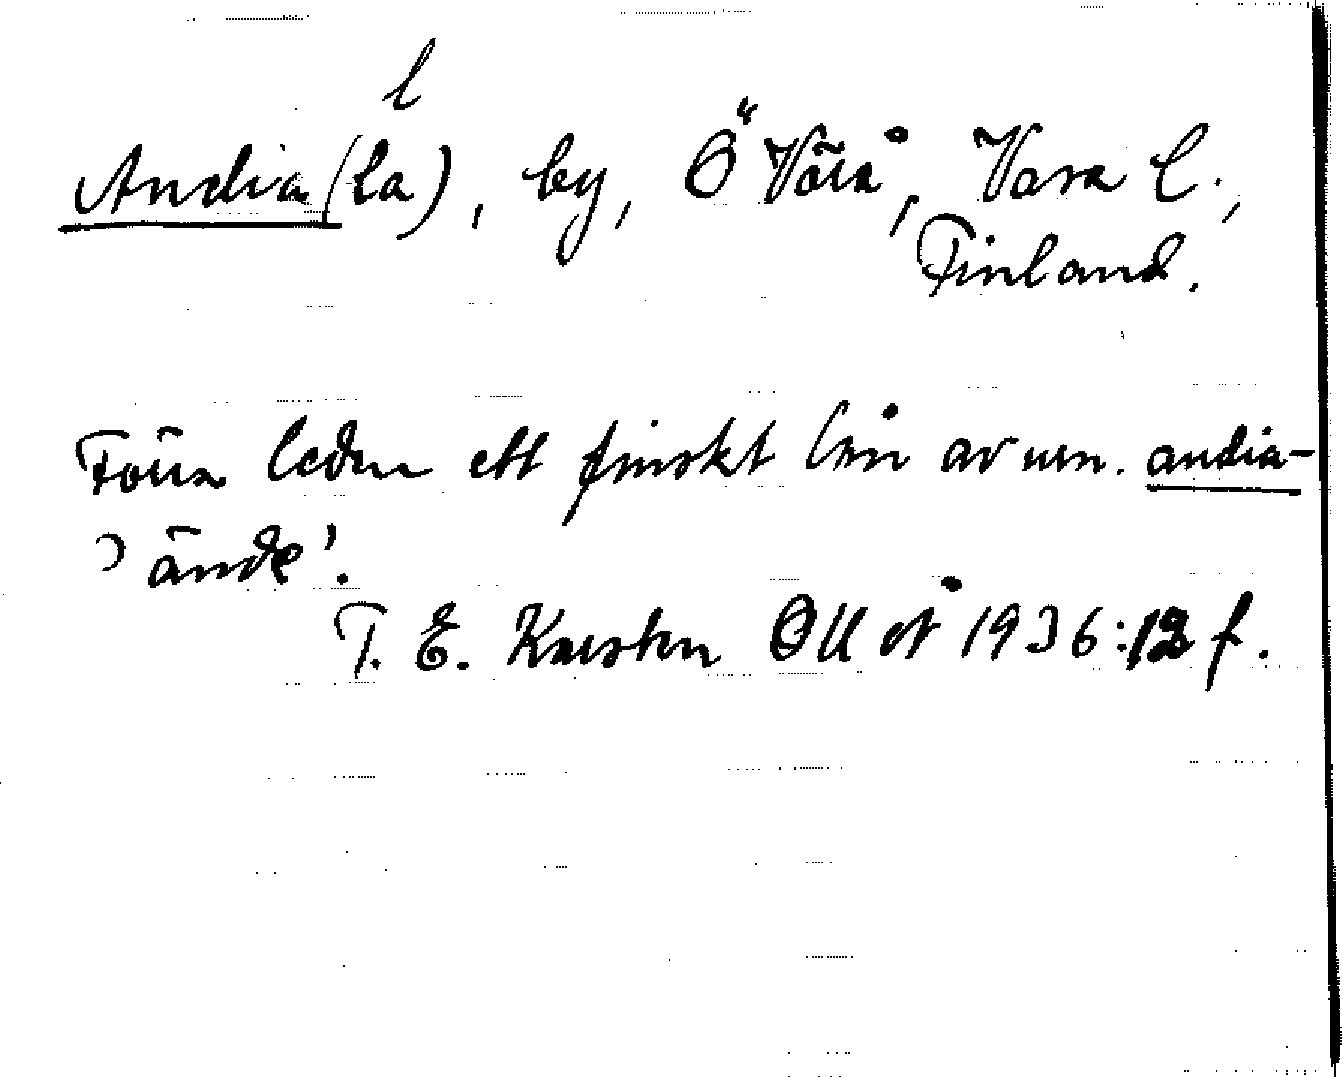 l
Andia(la), by, Ö Vörå, Vasa l.,
Finland.
Förra leden ett finskt lån av urn. andia-
'ände'.
T. E. Karsten 1936:12 f.